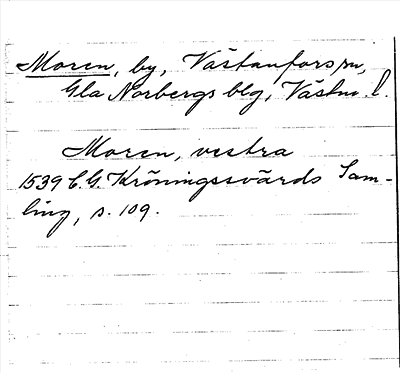 Moren, by, Västanfors sn,
Gla Norbergs blg, Västm. l.
Moren, vestra
1539 C. G. Kröningssvärds Sam-
ling, s. 109.